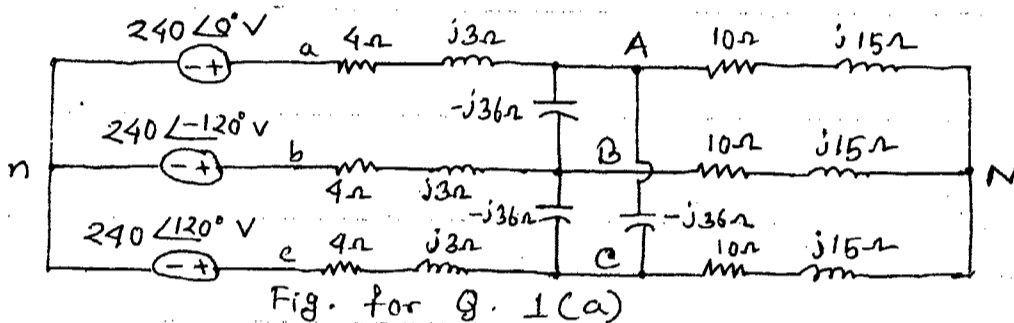 240∠0° V
a
4Ω
j3Ω
A
10Ω
j15Ω
-j36Ω
240∠-120° V
n
b
4Ω
j3Ω
B
10Ω
j15Ω
N
-j36Ω
-j36Ω
240∠120° V
c
4Ω
j3Ω
C
10Ω
j15Ω
Fig. for Q. 1(a)